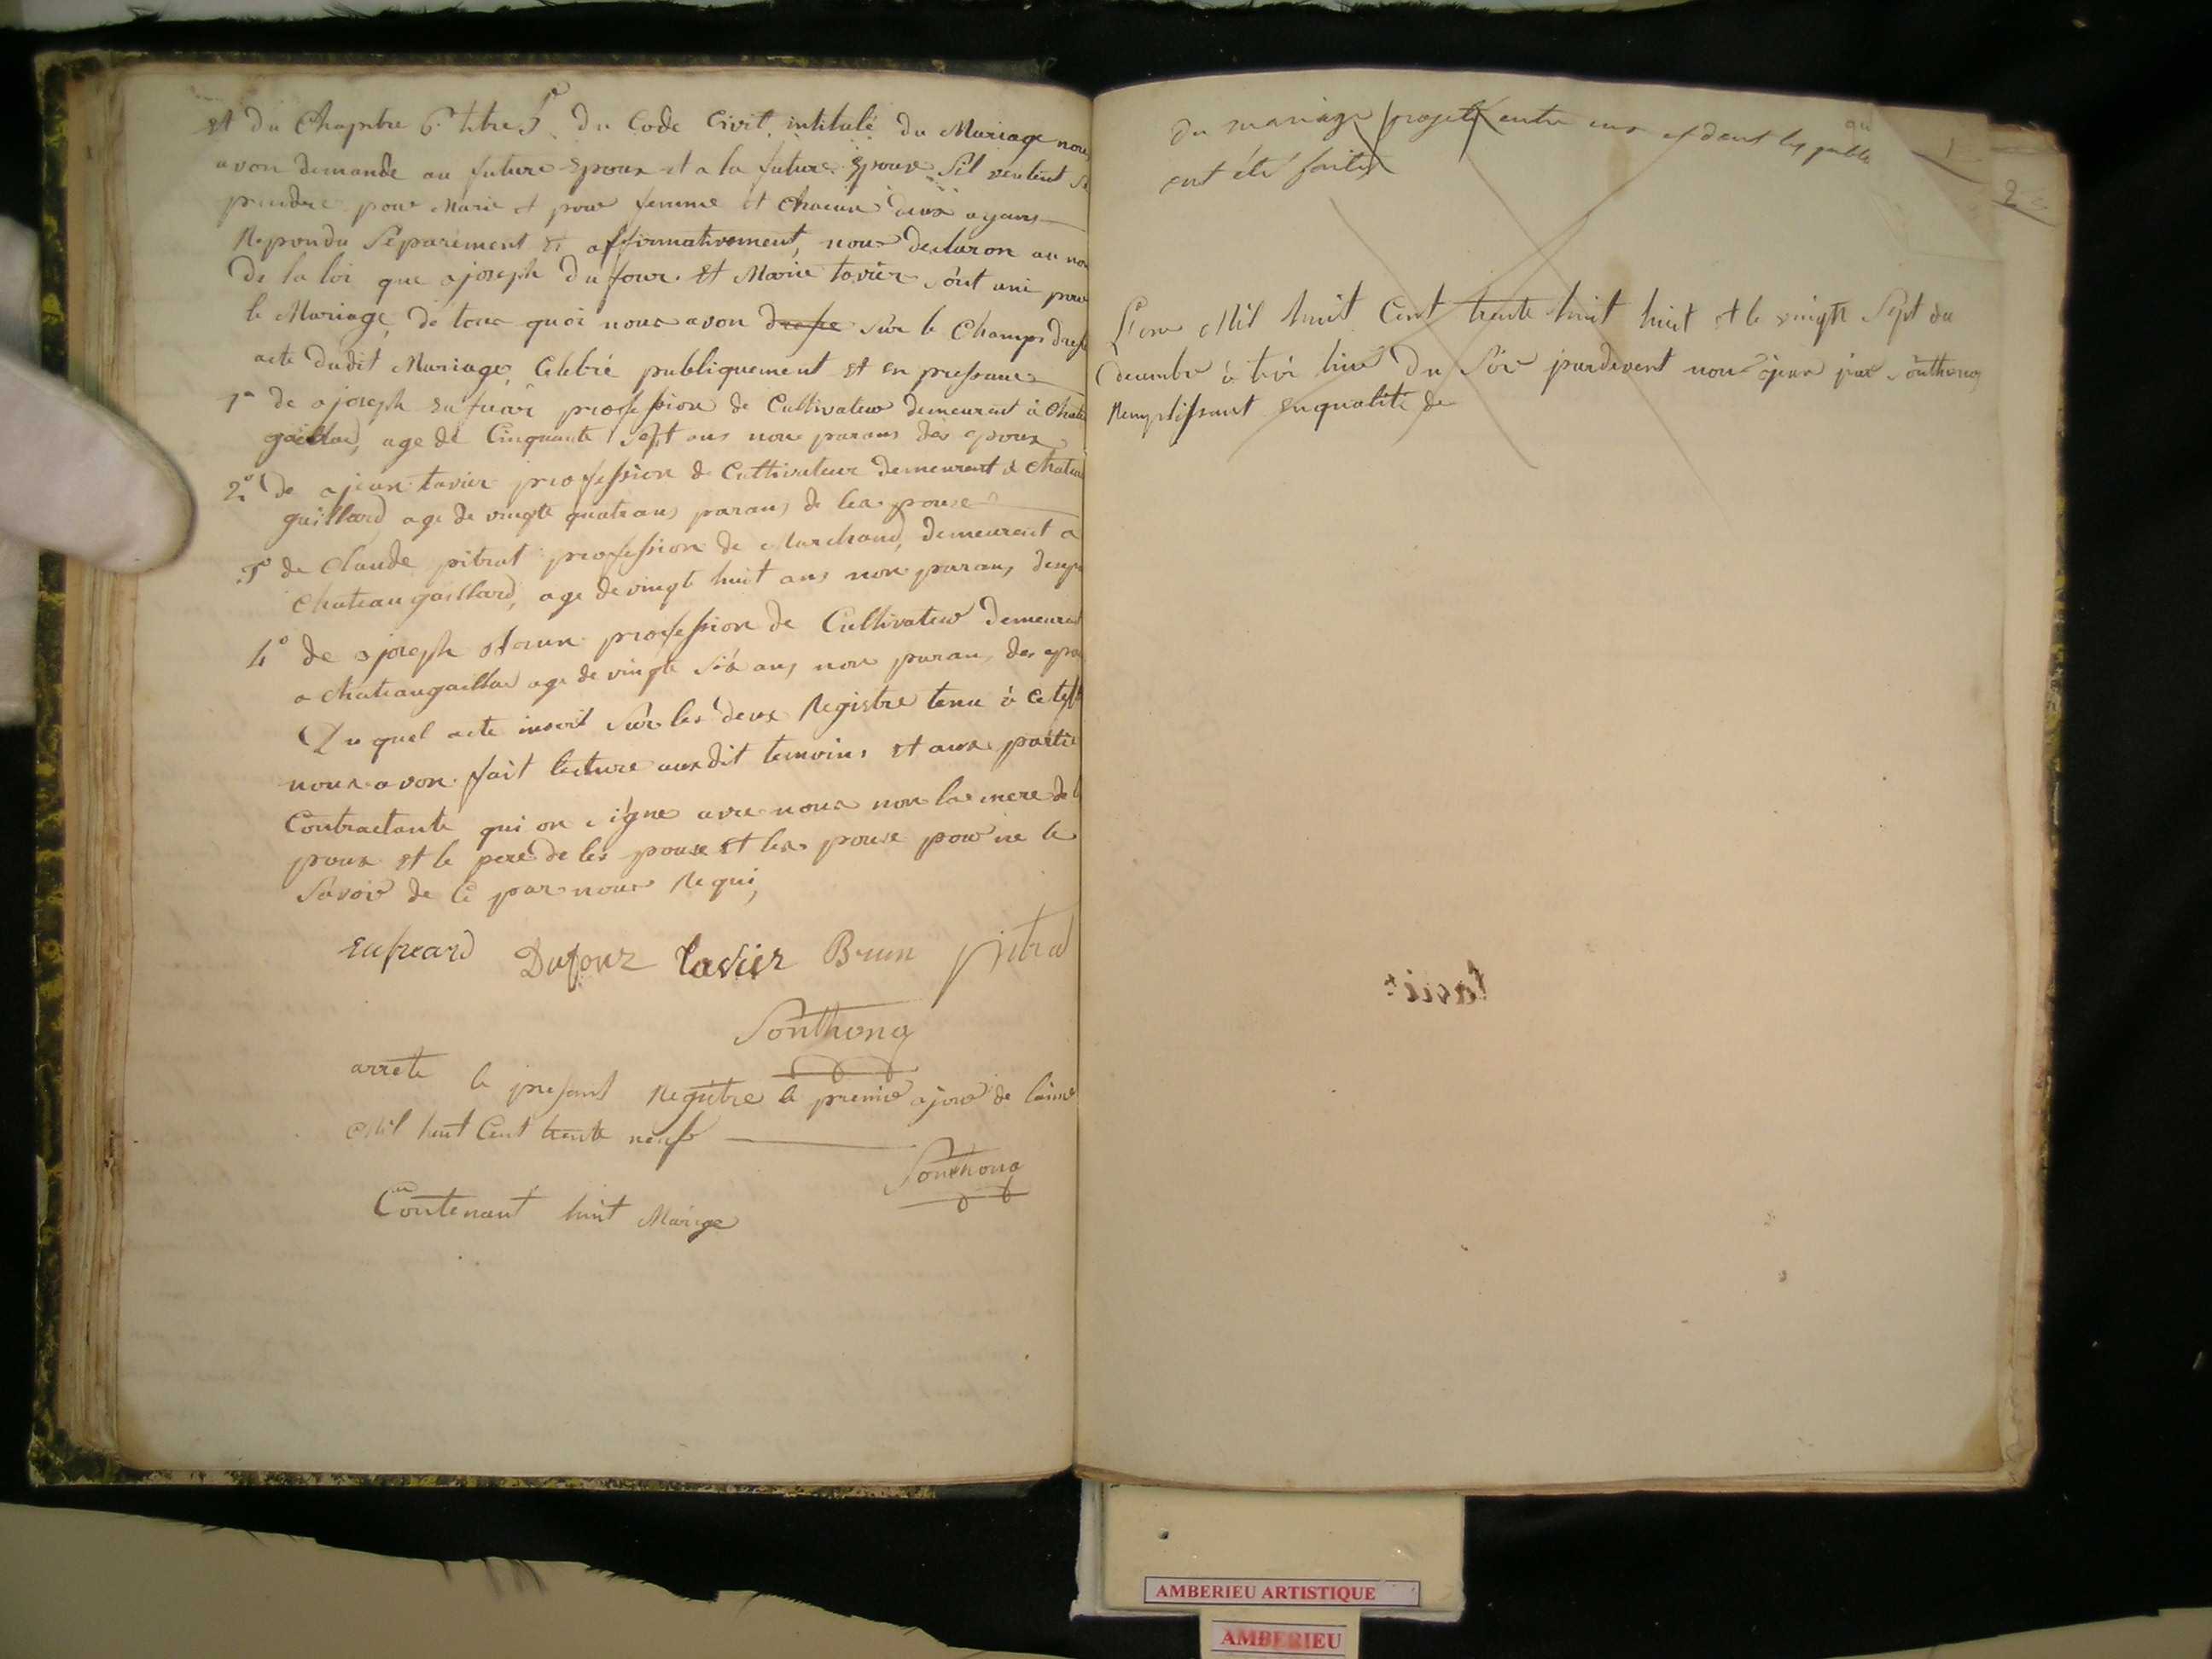 et du Chapitre 6e titre 5e du Code Civil intitulé du Mariage nous
avon demandé au future Epoux et a la future Epouse sil veulent se
prendre pour Marie et pour femme et chacun deux ayans
Repondu Séparément et affirmativement, nous declaron au nom
de la loi que ajoseph dufour et Marie tavier sont uni pour
le Mariage, de tous quoi nous avon drese sur le Champs drese
acte dudit Mariage, Célébré publiquement et en presance
1º de ajoseph profession de Cultivateur demeurant à Chateau
gaillard, age de Cinquante Sept ans non parans des epoux
2º de ajean tavier profession de Cultivateur demeurant à Chateau
gaillard age de vingte quatrans parans de lea pouse
3º de Claude pitrat profession de Marchand, demeurant a
Chateaugaillard, age de vingte huit ans non parans
4º de ajoseph profession de Cultivateur demeurant
a Chateaugaillard age de vingte six ans non parans des
Du quel acte inscrit sur les deux Registre tenu à
nous avon fait lecture aux dit temoins et aux partie
Contractante qui on signe avec nous non la mere de
poux et le pere de les pouse et lea pouse pour ne le
savoir de ce par nous Requi,
Dufour tavier Brun pitrat
Sonthona
arrete le presant Registre le premier ajour de
Mil huit Cent trente neuf
Sonthona
Contenant huit Marige
du mariage projeté entre eux et dont les public
ont été faites
1
2
Mil huit Cent trente huit huit et le vingte Sept du
decembre à du soir pardevent nous ajean Sonthona
Remplissant enqualité de
tavier
AMBERIEU ARTISTIQUE
AMBERIEU